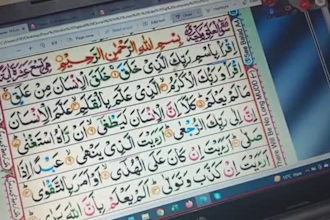 بِسْمِ اللهِ الرَّحْمٰنِ الرَّحِيْمِ
اِقْرَاْ بِاسْمِ رَبِّكَ الَّذِيْ خَلَقَ خَلَقَ الْاِنْسَانَ مِنْ عَلَقٍ
اِقْرَاْ وَرَبُّكَ الْاَكْرَمُ الَّذِيْ عَلَّمَ بِالْقَلَمِ عَلَّمَ الْاِنْسَانَ
مَا لَمْ يَعْلَمْ كَلَّا اِنَّ الْاِنْسَانَ لَيَطْغٰى اَنْ رَّاٰهُ اسْتَغْنٰى
اِنَّ اِلٰى رَبِّكَ الرُّجْعٰى اَرَءَيْتَ الَّذِيْ يَنْهٰى عَبْدًا اِذَا
صَلّٰى اَرَءَيْتَ اِنْ كَانَ عَلَى الْهُدٰى اَوْ اَمَرَ بِالتَّقْوٰى
اَرَءَيْتَ اِنْ كَذَّبَ وَتَوَلّٰى اَلَمْ يَعْلَمْ بِاَنَّ اللهَ